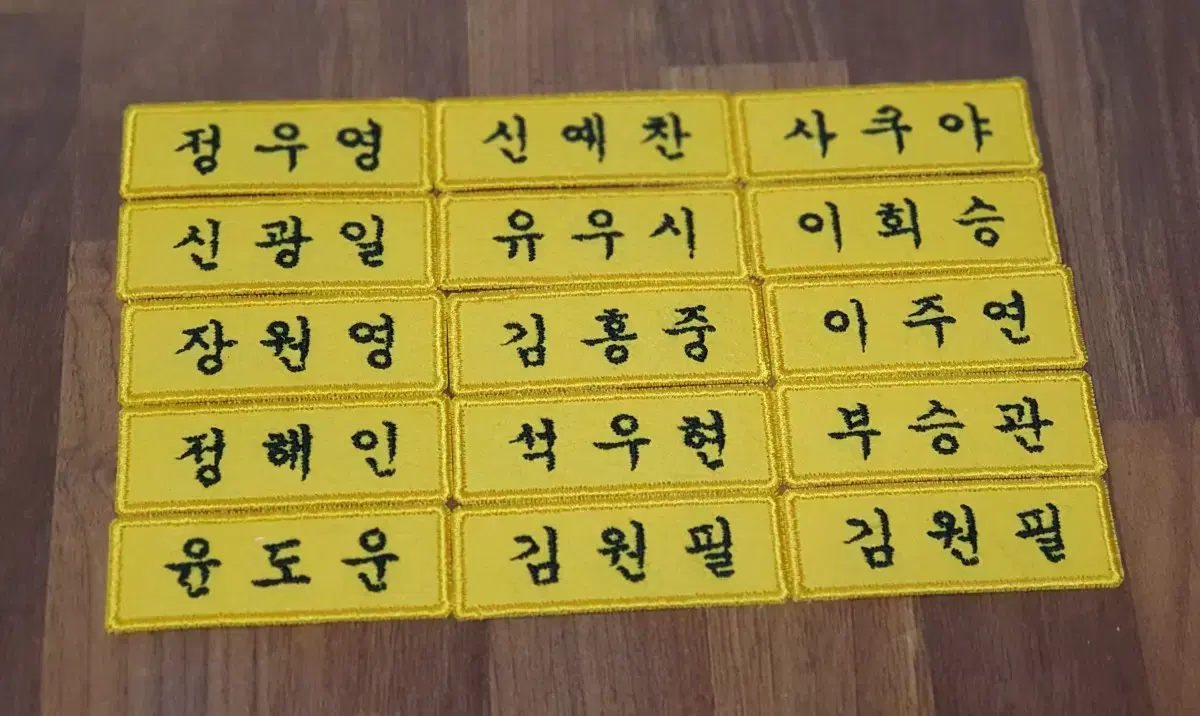 정우영 신예찬 사쿠야
신광일 유우시 이회승
장원영 김홍중 이주연
정해인 석우현 부승관
윤도운 김원필 김원필